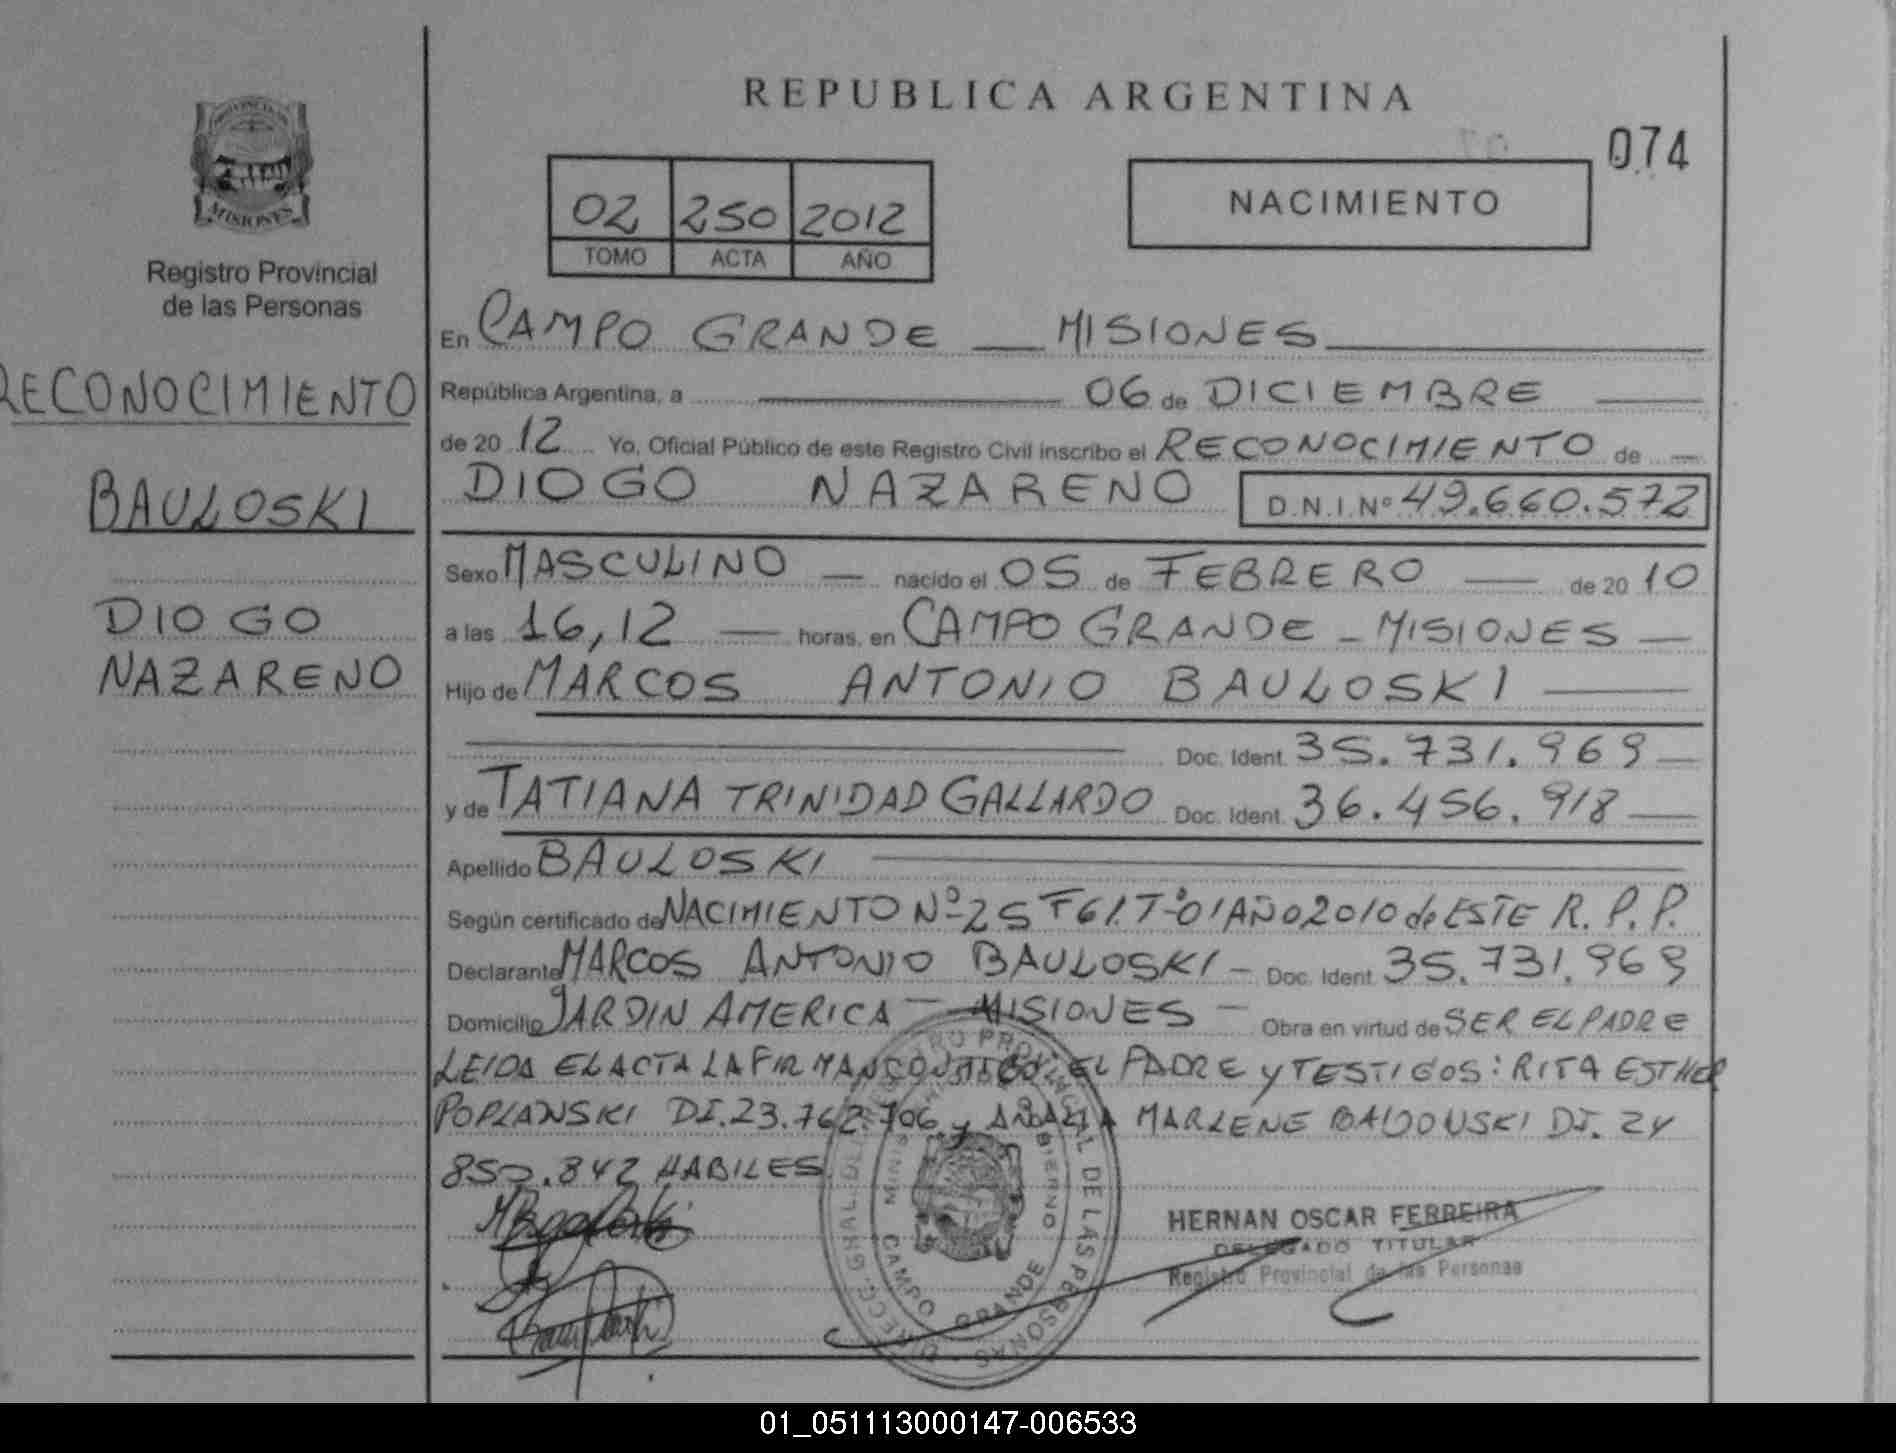 REPUBLICA ARGENTINA
074
MISIONES
Registro Provincial
de las Personas
RECONOCIMIENTO
BAULOSKI
DIOGO
NAZARENO
02 250 2012
TOMO ACTA AÑO
NACIMIENTO
En CAMPO GRANDE — MISIONES
República Argentina, a 06 de DICIEMBRE
de 2012 Yo, Oficial Público de este Registro Civil inscribo el RECONOCIMIENTO de
DIOGO NAZARENO D.N.I. Nº 49.660.572
Sexo MASCULINO — nacido el 05 de FEBRERO — de 2010
a las 16,12 — horas, en CAMPO GRANDE - MISIONES —
Hijo de MARCOS ANTONIO BAULOSKI
Doc. Ident. 35.731.969
y de TATIANA TRINIDAD GALLARDO Doc. Ident. 36.456.918
Apellido BAULOSKI
Según certificado de NACIMIENTO Nº 25 Fº 61. Tº 01 AÑO 2010 de ESTE R.P.P.
Declarante MARCOS ANTONIO BAULOSKI - Doc. Ident. 35.731.969
Domicilio JARDIN AMERICA - MISIONES - Obra en virtud de SER EL PADRE
LEIDA EL ACTA LA FIRMAN CONMIGO: EL PADRE y TESTIGOS: RITA ESTHER
POPLAWSKI DI. 23.762.706 y MARLENE DI. 24
850.842 HABILES
HERNAN OSCAR FERREIRA
DELEGADO TITULAR
Registro Provincial de las Personas
PROVINCIAL DE LAS PERSONAS
CAMPO GRANDE
01_051113000147-006533